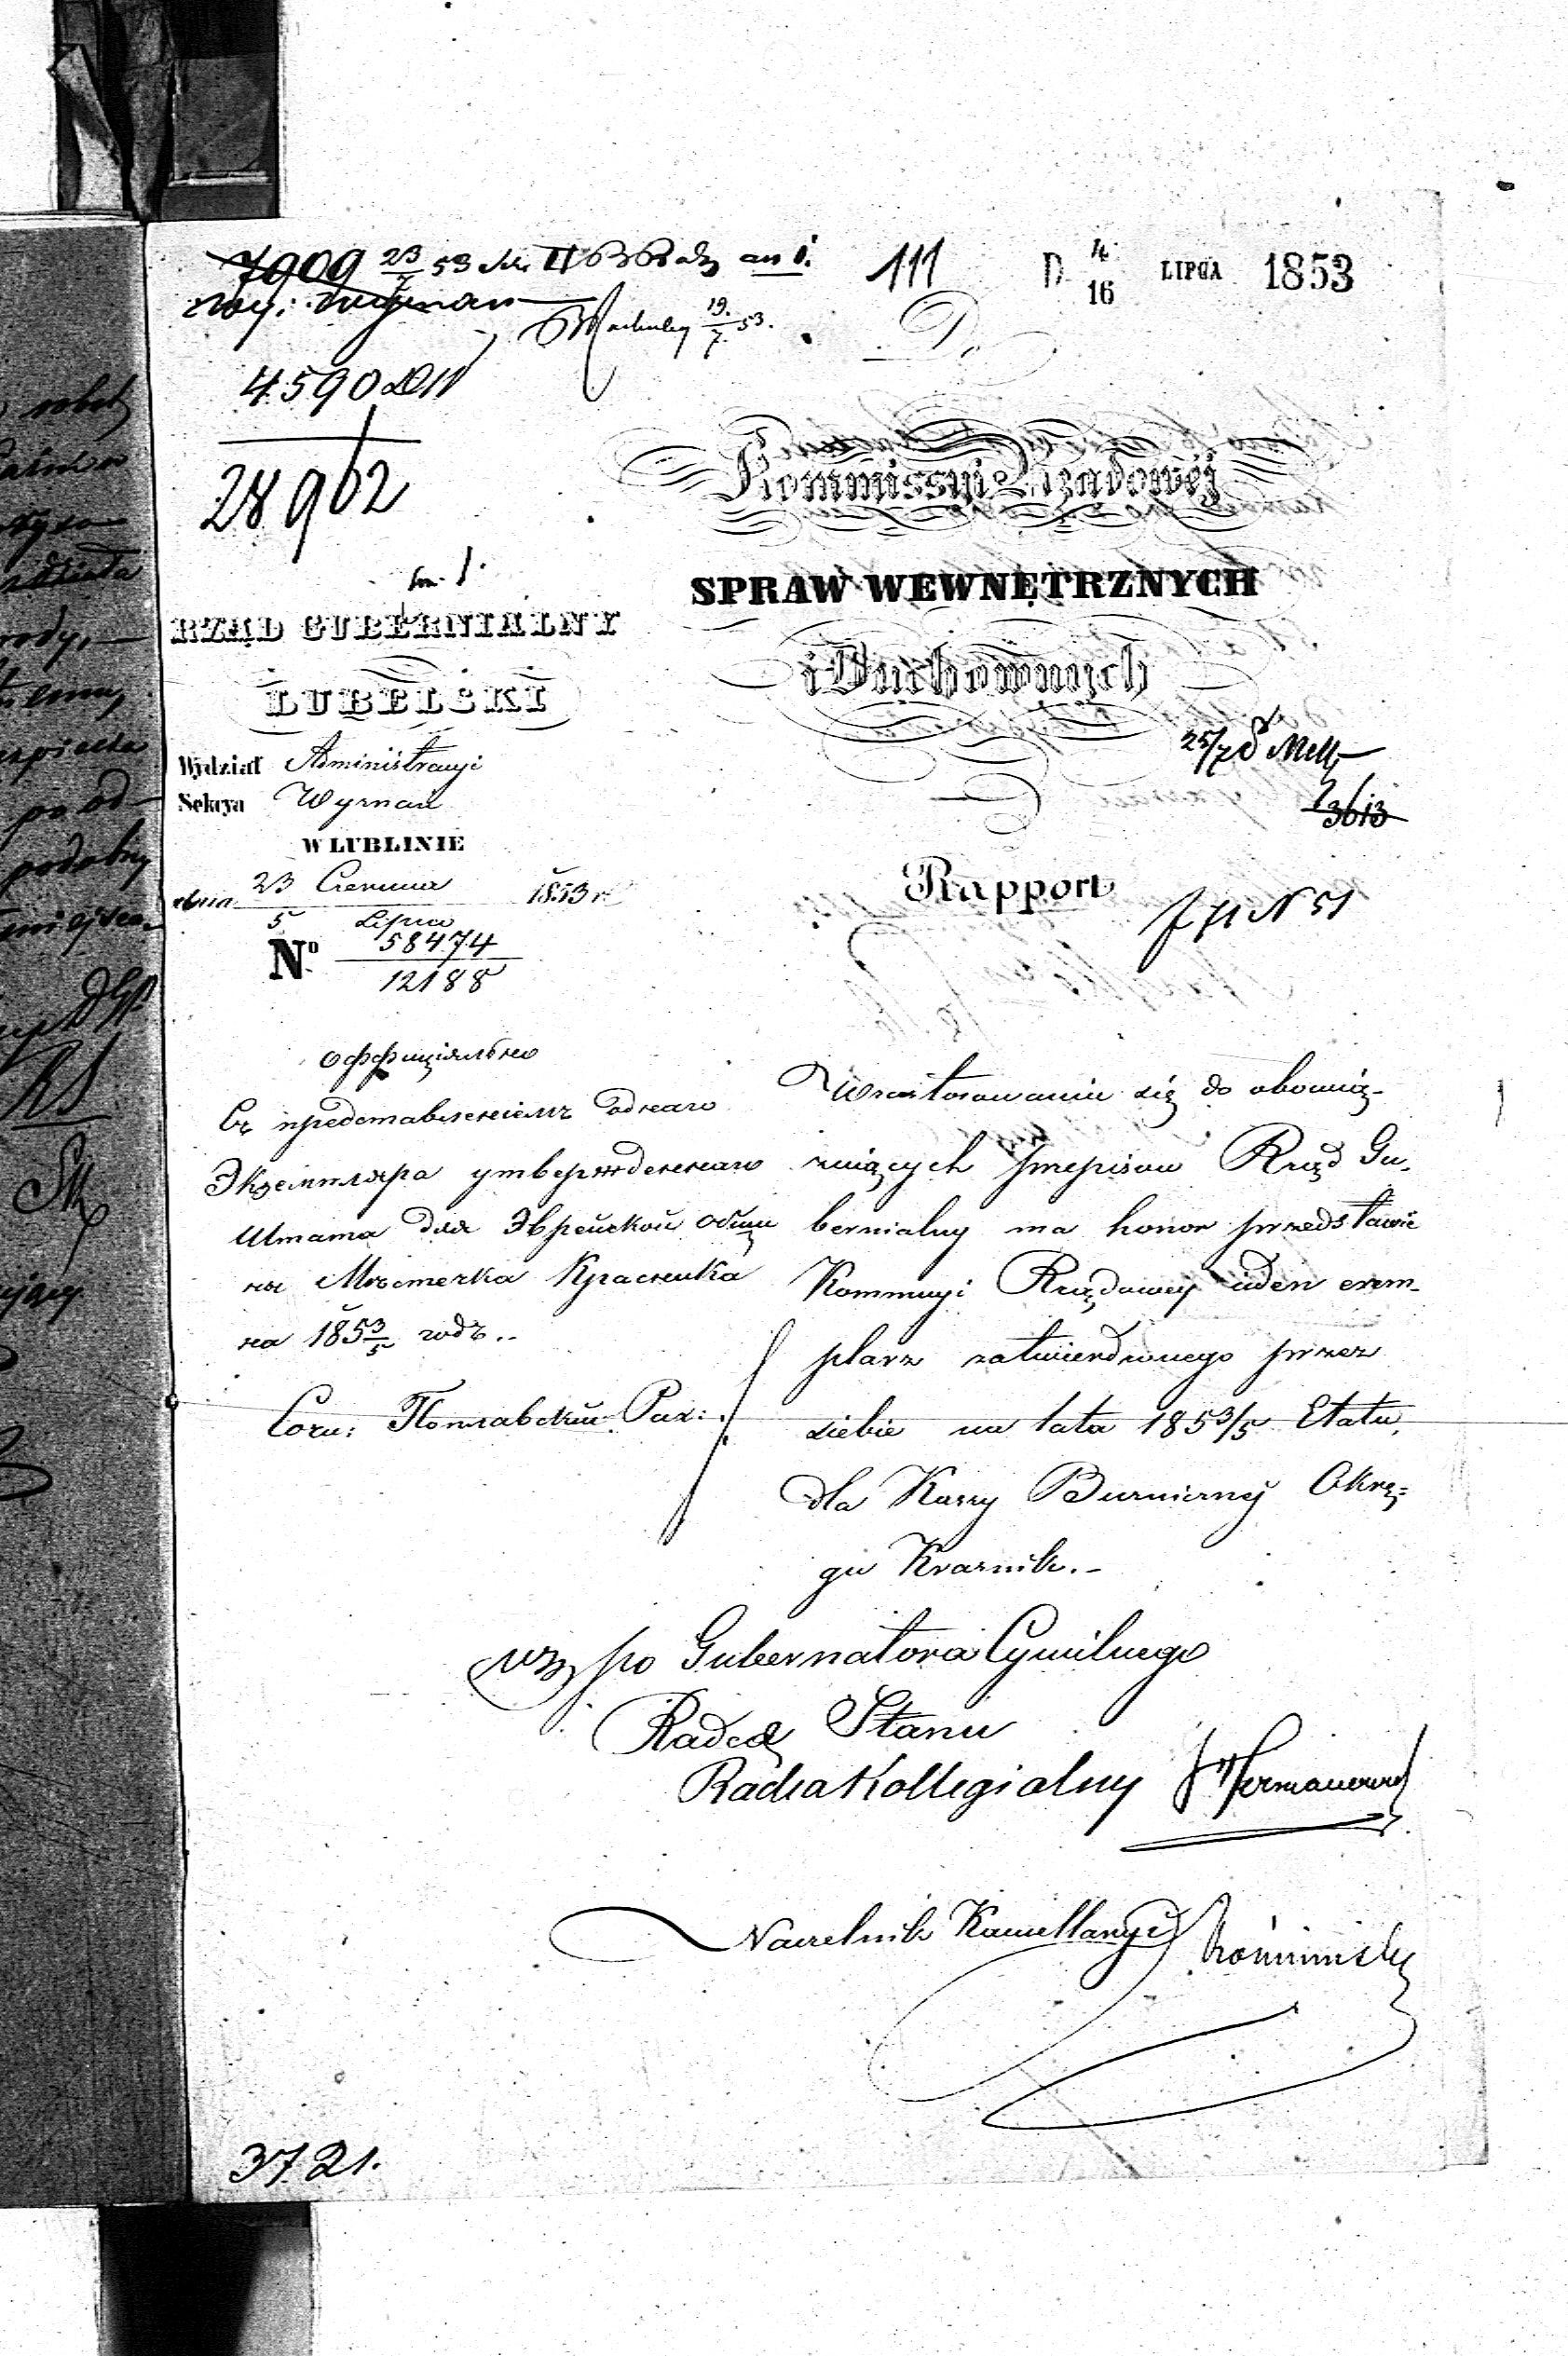 7909 23/7 53
111
D 4/16 LIPCA 1853
19/7 53.
Do
4590
28962
Kommissyi Rządowéj
SPRAW WEWNĘTRZNYCH
i Duchownych
RZĄD GUBERNIALNY
LUBELSKI
Wydział Administracyi
Sekcya Wyznań
W LUBLINIE
dnia 23 Czerwca / 5 Lipca 1853 r.
No 58474 / 12188
Rapport
N 51
оффиціяльно
Съ представленіемъ однаго
Экземпляра утвержденнаго
Штата для Эврейской общи
ны Мѣстечка Красника
на 1853/5 годъ..
W zastosowaniu się do obowią-
zuiących przepisów Rząd Gu-
bernialny ma honor przedstawić
Kommissyi Rządowey ieden exem-
plarz zatwierdzonego przez
siebie na lata 1853/5 Etatu,
dla Kassy Bużniczney Okrę-
gu Kraśnik.-
wz po Gubernatora Cywilnego
Radcy Stanu
Radca Kollegialny
Naczelnik Kancellaryi
3721.